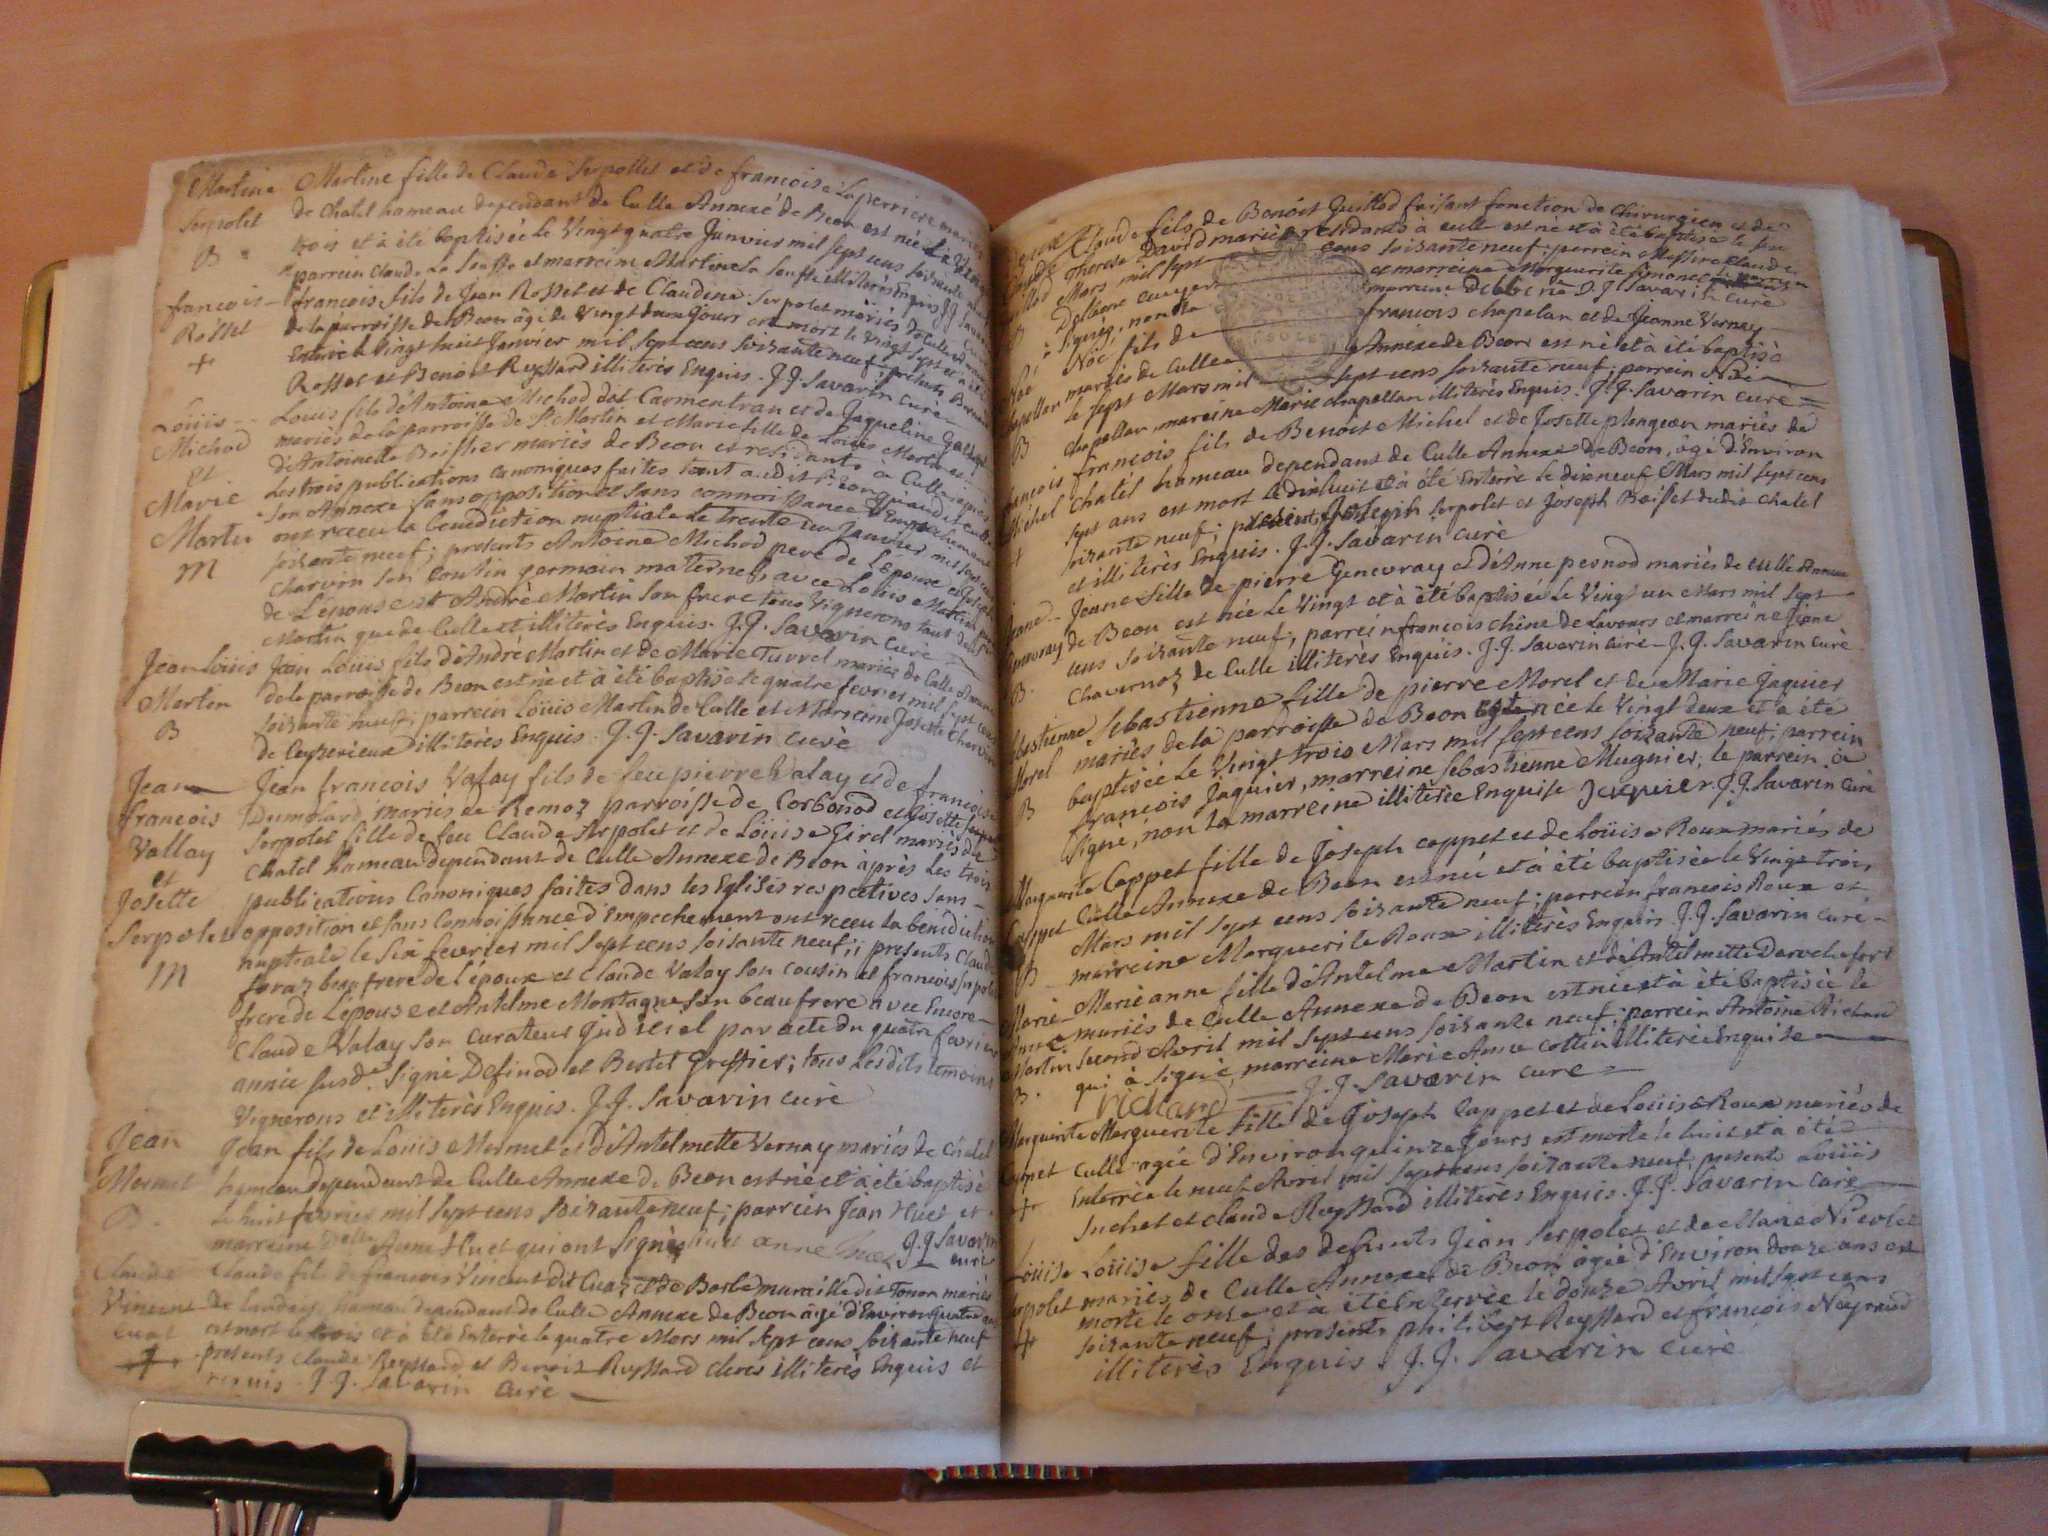 Martine Martine fille de Claude Serpollet et de francoise Laperriere mariés
Serpolet de Chatel hameau dependant de Culle Annexé de Beon est née le Vingt
B trois et à été baptisée le Vingt quatre Janvier mil sept cens soisante neuf
parrein Claude La et marreine Martine La illiterés Enquis J.J. Savarin
francois francois fils de Jean Rosset et de Claudine Serpolet mariés de Culle
Rosset de la parroisse de Beon âgé de Vingt deux Jours est mort le Vingt sept et à été
+ Enterré le Vingt huit Janvier mil sept cens soisante neuf; presents Bernard
Rosset et Benoit Reyssard illiterés Enquis. J.J. Savarin curé
Loüis Louis fils d'Antoine Michod dit Carmentran et de Jaqueline
Michod mariés de la parroisse de St. Martin et Marie fille de Loüis Martin et
et d'Antoinette mariés de Beon et residants à Culle après
Marie Les trois publications canoniques faites tant audit St. Martin qu'audit Culle
son Annexe sans opposition et sans connoissance d'Empechement
Martin ont receu la benediction nuptiale le trente un Janvier mil sept cens
m soisante neuf; presents Antoine Michod pere de L'epoux et
Charvin son cousin germain maternel, avec Loüis Martin pere
de L'epouse et André Martin son frere tous Vignerons tant de St.
Martin que de Culle et illiterés Enquis. J.J. Savarin curé
Jean Loüis Jean Loüis fils d'André Martin et de Marie Turrel mariés de Culle Annexe
Martin de la parroisse de Beon est né et à été baptisé le quatre fevrier mil sept cens
B soisante neuf; parrein Loüis Martin de Culle et Marreine Josette Charvin
de Ceyzerieux illiterés Enquis. J.J. Savarin curé
Jean Jean francois Valay fils de feu pierre Valay et de francoise
francois Dumolard mariés de Remoz parroisse de Corbonod et Josette
Vallay Serpolet fille de feu Claude Serpolet et de Loüise Girel mariés de
et Chatel hameau dependant de Culle Annexe de Beon âprès les trois
Josette publications Canoniques faites dans les Eglises respectives sans
Serpolet opposition et sans Connoissance d'Empechement ont receu la benediction
m nuptiale le six fevrier mil sept cens soisante neuf; presents Claude
beau frere de L'époux et Claude Valay son cousin et francois Serpolet
frere de L'epouse et Antelme Montagne son beau frere avec Encore
Claude Valay son curateur Judiciel par acte du quatre fevrier
année susd.e Signé Definod et Bertet Greffier; tous Lesdits temoins
Vignerons et illiterés Enquis. J.J. Savarin curé
Jean Jean fils de Loüis Mermet et d'Antelmette Vernay mariés de Chatel
Mermet hameau dependant de Culle Annexe de Beon est né et à été baptisé
B. le huit fevrier mil sept cens soisante neuf; parrein Jean Huet et
marreine Anne Huet qui ont Signés huet anne huet J.J. Savarin curé
Claude Claude fils de francois Vincent dit Cuaz et de Berle muraille dit Tonon mariés
Vincent de hameau dependant de Culle Annexe de Beon âgé d'Environ quatre ans
Cuat est mort le trois et à été Enterré le quatre Mars mil sept cens soisante neuf
+ presents Claude Reyssard et Benoit Reyssard clercs illiterés Enquis et
requis. J.J. Savarin Curé
Claude Claude fils de Benoit Guillod faisant fonction de Chirurgien et de
Therese David mariés residants à culle est né et à été baptisé le
Mars mil sept cens soisante neuf; parrein Messire Claude
ecuyer et marreine Marguerite Simonet
à Signé, non la marreine J.J. Savarin curé
Noé Noé fils de francois chapelan et de Jeanne Vernay
Chapellan mariés de Culle Annexe de Beon est né et à été baptisé
le sept Mars mil sept cens soisante neuf; parrein Noé
B Chapellan, mareine Marie chapellan illiterés Enquis. J.J. Savarin curé
francois francois fils de Benoit Michel et de Josette plongeon mariés de
Michel Chatel hameau dependant de Culle Annexe de Beon, âgé d'Environ
+ sept ans est mort le dixhuit et à été Enterré le dix neuf Mars mil sept cens
soisante neuf; presents Joseph Serpolet et Joseph Boisset dudit Chatel
et illiterés Enquis. J.J. Savarin curé
Jeane Jeane fille de pierre Genevray et d'Anne pesnod mariés de culle Annexe
Genevray de Beon est née le Vingt et à été baptisée le Vingt un Mars mil sept
B. cens soisante neuf; parrein francois chêne de Lavours et marreine Jeane
Chavernoz de Culle illiterés Enquis. J.J. Savarin curé J.J. Savarin curé
Sebastienne Sebastienne fille de pierre Morel et de Marie Jaquier
Morel mariés de la parroisse de Beon est née le Vingt deux et à été
B baptisée le Vingt trois Mars mil sept cens soisante neuf; parrein
francois Jaquier, marreine Sebastienne Mugnier; le parrein à
Signé, non la marreine illiterée Enquise Jaquier J.J. Savarin curé
Marguerite Coppet fille de Joseph coppet et de Loüise Roux mariés de
Coppet Culle Annexe de Beon est née et à été baptisée le Vingt trois
B Mars mil sept cens soisante neuf; parrein francois Roux et
marreine Marguerite Roux illiterés Enquis J.J. Savarin curé
Marie Marie anne fille d'Antelme Martin et d'Antelmette Derochefort
Anne mariés de Culle Annexe de Beon est née et à été baptisée le
Martin second Avril mil sept cens soisante neuf; parrein Antoine Richard
B. qui à Signé, marreine Marie Anne Cottin illiterée Enquise
richard J.J. Savarin curé
Marguerite Marguerite fille de Joseph Coppet et de Loüise Roux mariés de
Coppet Culle agée d'Environ quinze Jours est morte le huit et à été
+ Enterrée le neuf Avril mil sept cens soisante neuf; presents Loüis
Juchet et Claude Reyssard illiterés Enquis. J.J. Savarin curé
Loüise Loüise fille des defunts Jean Serpolet et de Marie Nicolet
Serpolet mariés de Culle Annexe de Beon âgée d'Environ douze ans est
+ morte le onze et à été Enterrée le douze Avril mil sept cens
soisante neuf; presents philibert Reyssard et francois Neyraud
illiterés Enquis. J.J. Savarin curé